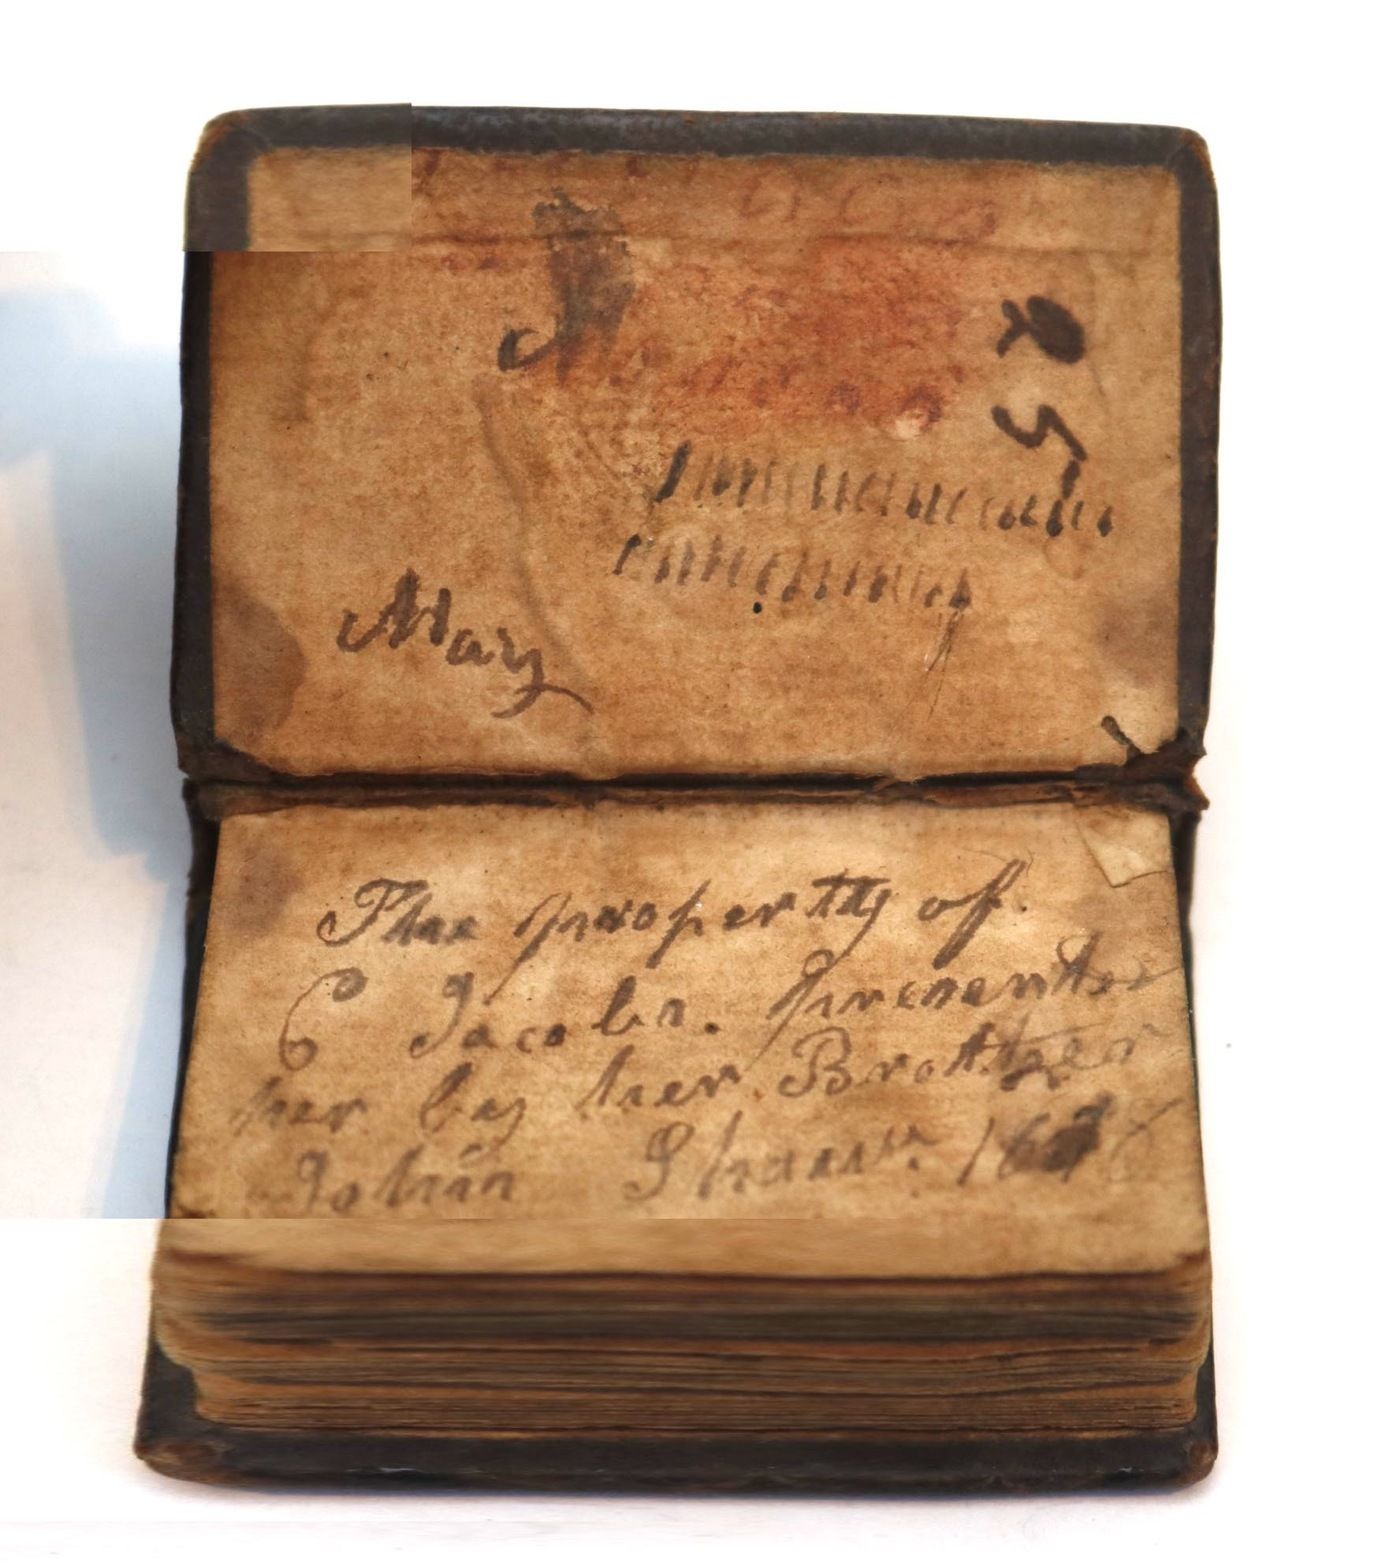 25
Mary
The property of
Jacobs. presented
her by her Brother
John